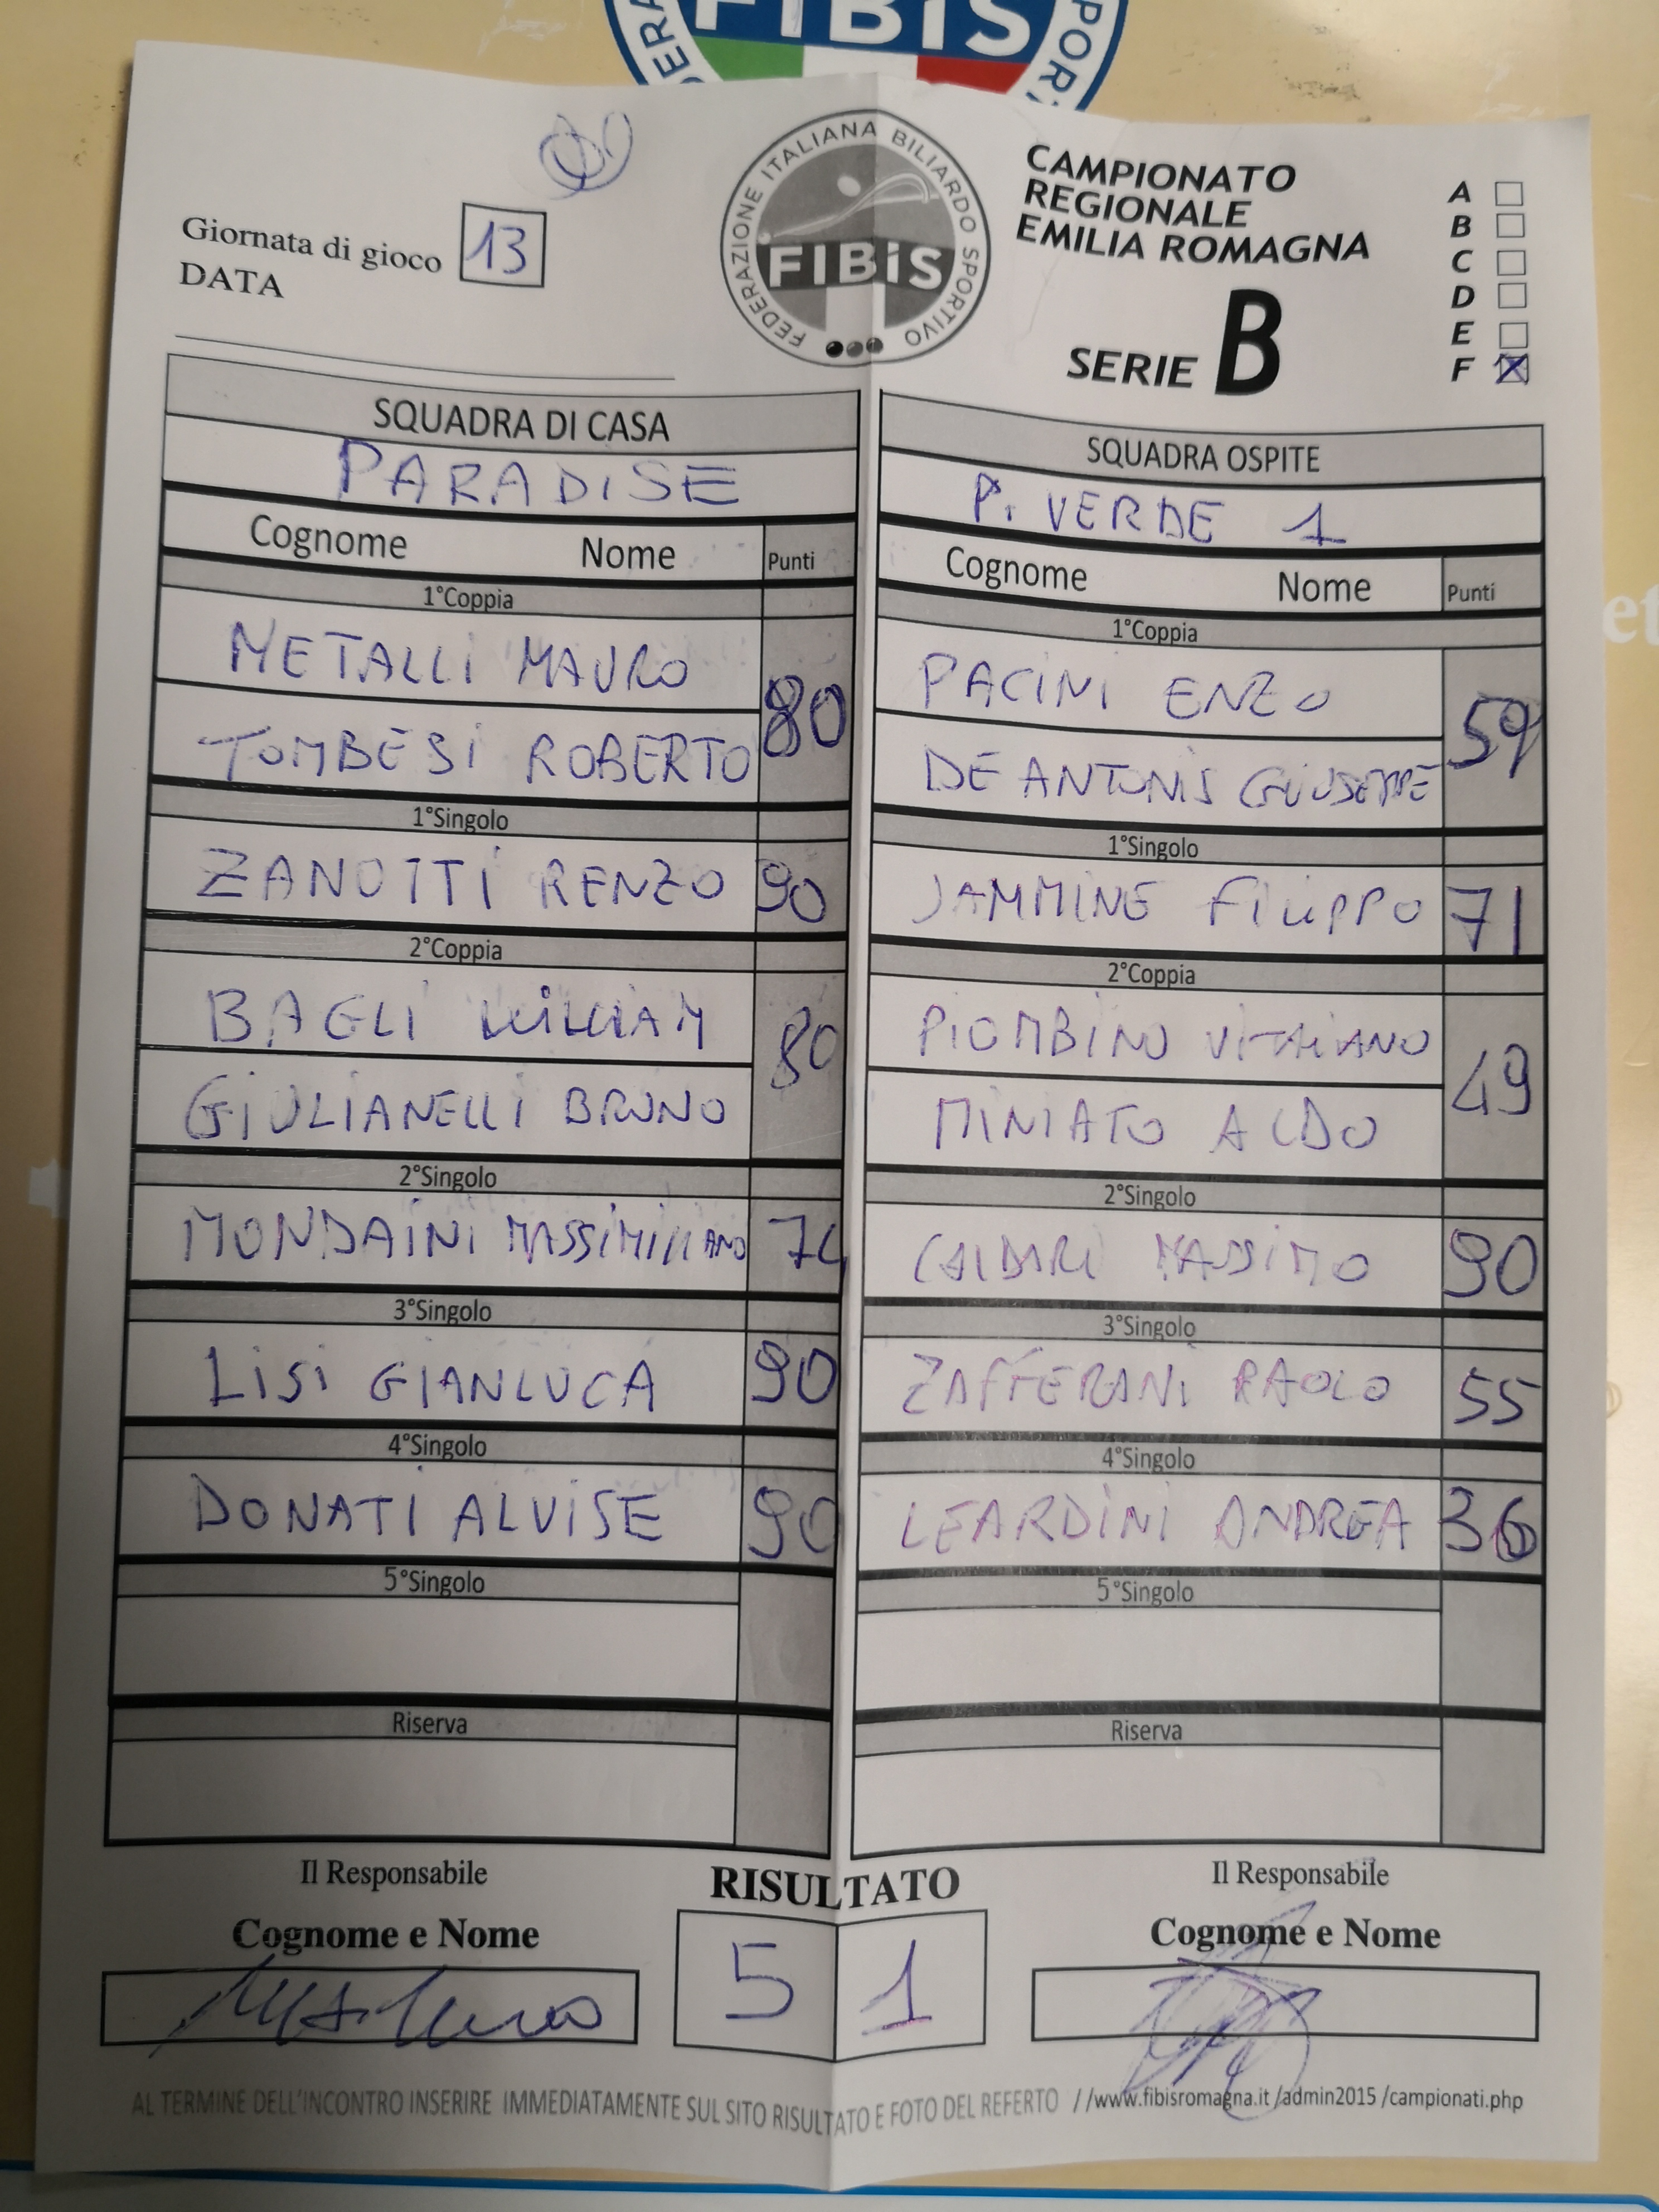 FIBiS
Giornata di gioco 13
DATA
FEDERAZIONE ITALIANA BILIARDO SPORTIVO
FIBiS
CAMPIONATO
REGIONALE
EMILIA ROMAGNA
SERIE B
A
B
C
D
E
F X
SQUADRA DI CASA
PARADISE
Cognome Nome Punti
1°Coppia
METALLI MAURO
TOMBESI ROBERTO
80
1°Singolo
ZANOTTI RENZO 90
2°Coppia
BAGLI WILLIAM
GIULIANELLI BRUNO
80
2°Singolo
MONDAINI MASSIMILIANO 74
3°Singolo
LISI GIANLUCA 90
4°Singolo
DONATI ALVISE 90
5°Singolo
Riserva
SQUADRA OSPITE
P. VERDE 1
Cognome Nome Punti
1°Coppia
PACINI ENZO
DE ANTONIS GIUSEPPE
59
1°Singolo
JAMMINE FILIPPO 71
2°Coppia
PIOMBINO VITALIANO
MINIATO ALDO
49
2°Singolo
CALDARI MASSIMO 90
3°Singolo
ZAFFERANI PAOLO 55
4°Singolo
LEARDINI ANDREA 36
5°Singolo
Riserva
Il Responsabile
Cognome e Nome
RISULTATO
5 1
Il Responsabile
Cognome e Nome
AL TERMINE DELL'INCONTRO INSERIRE IMMEDIATAMENTE SUL SITO RISULTATO E FOTO DEL REFERTO //www.fibisromagna.it /admin2015 /campionati.php